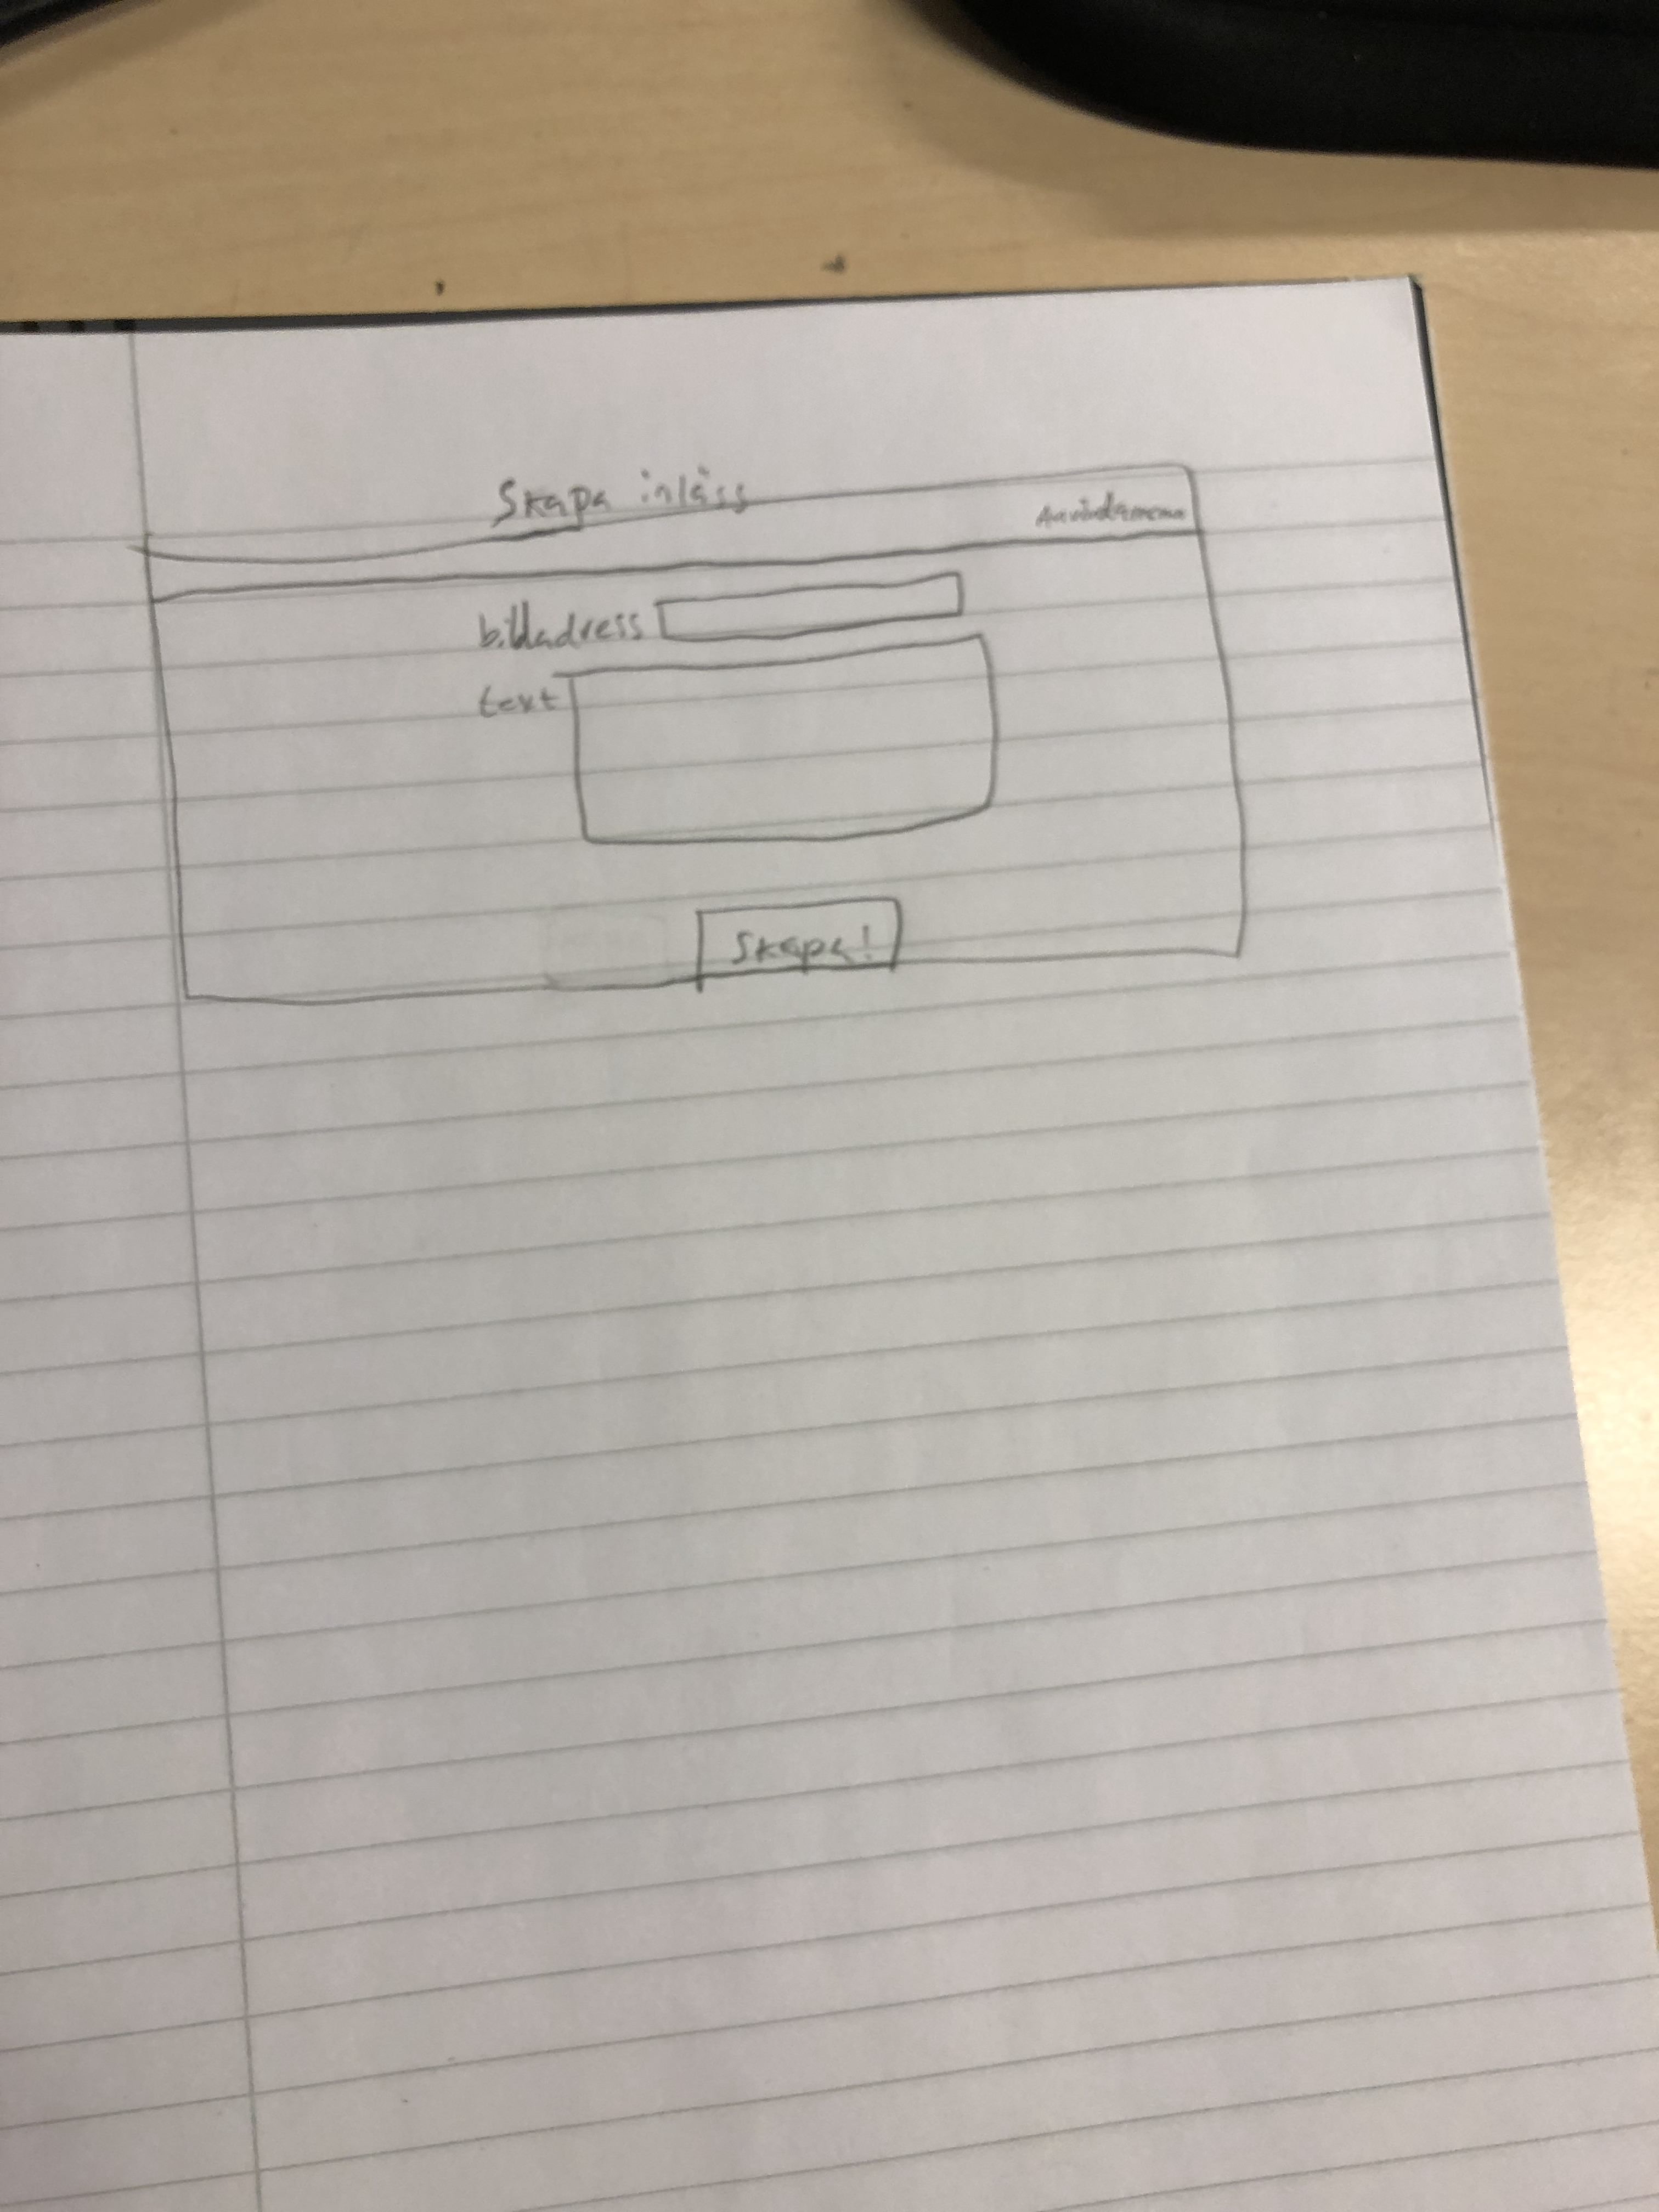 Skapa inläss
Användarnamn
bildadress
text
Skapa!